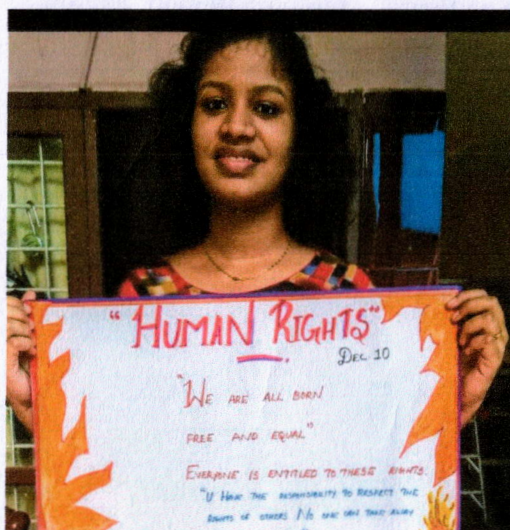 "HUMAN RIGHTS"
DEC 10
"WE ARE ALL BORN
FREE AND EQUAL"
EVERYONE IS ENTITLED TO THESE RIGHTS.
"U HAVE THE RESPONSIBILITY TO RESPECT THE
RIGHTS OF OTHERS NO ONE CAN TAKE AWAY